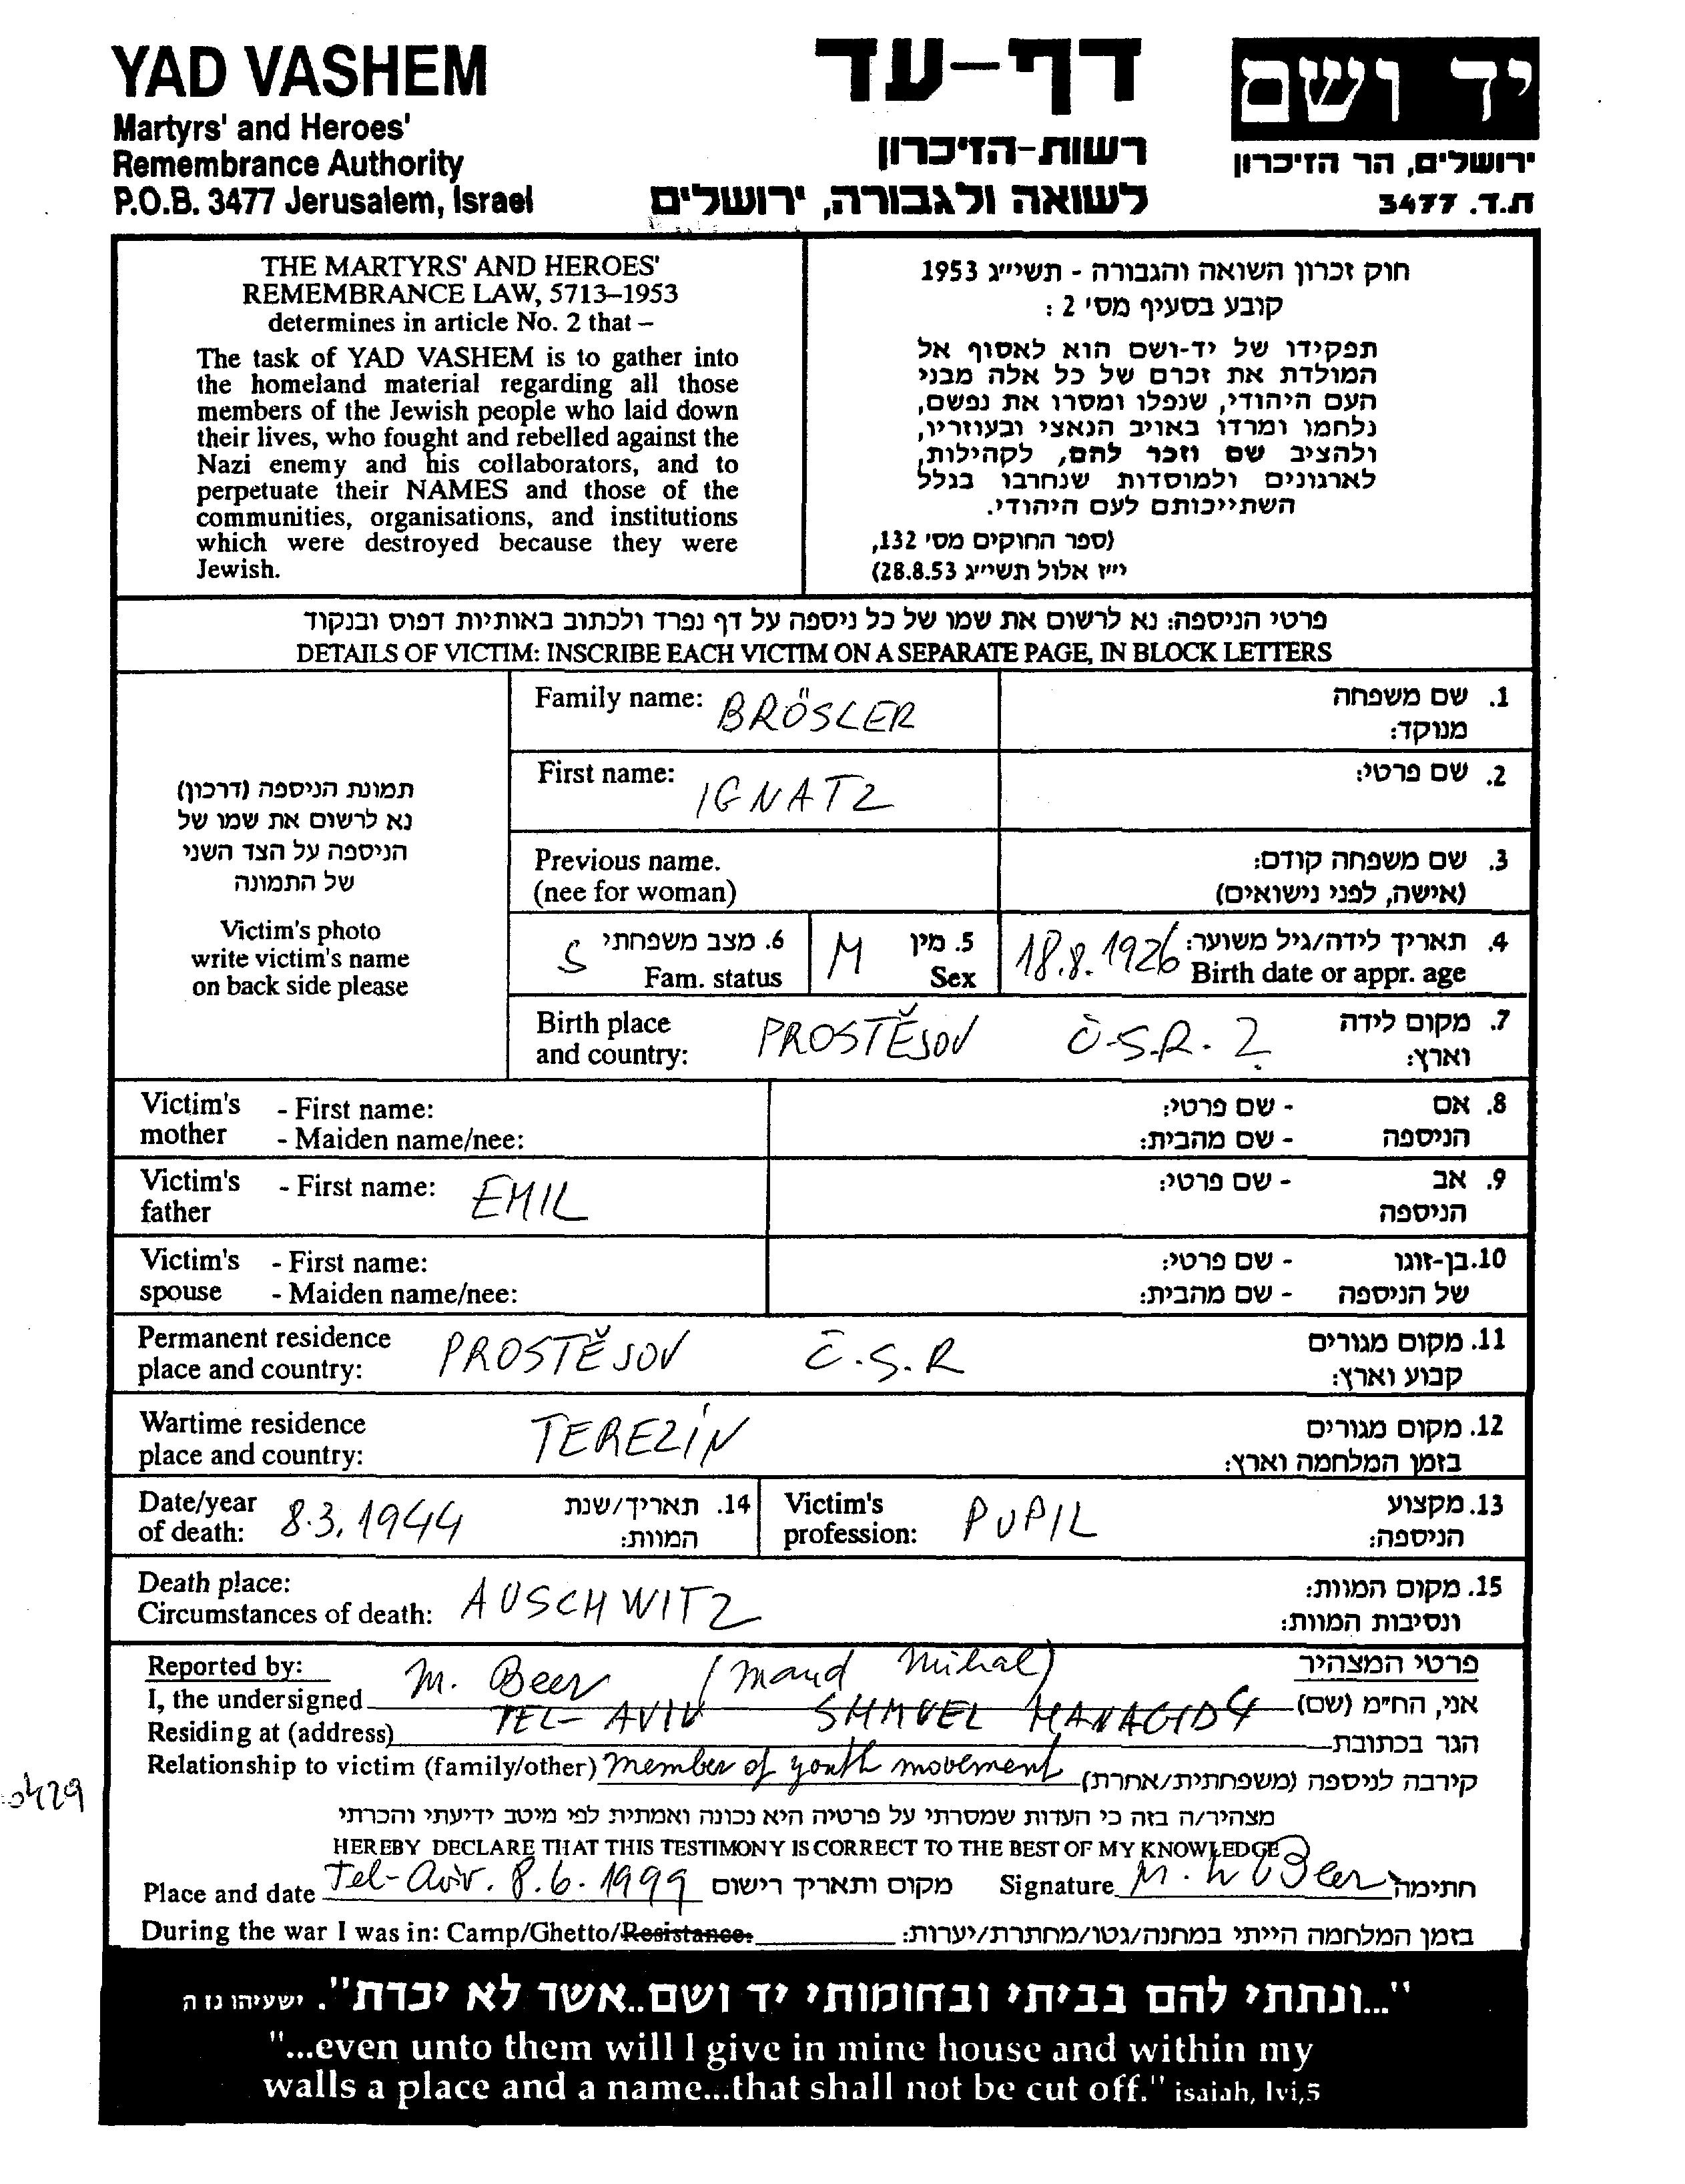 YAD VASHEM
Martyrs' and Heroes'
Remembrance Authority
P.O.B. 3477 Jerusalem, Israel
דף-עד
רשות-הזיכרון
לשואה ולגבורה, ירושלים
יד ושם
ירושלים, הר הזיכרון
ת.ד. 3477
THE MARTYRS' AND HEROES'
REMEMBRANCE LAW, 5713–1953
determines in article No. 2 that –
The task of YAD VASHEM is to gather into
the homeland material regarding all those
members of the Jewish people who laid down
their lives, who fought and rebelled against the
Nazi enemy and his collaborators, and to
perpetuate their NAMES and those of the
communities, organisations, and institutions
which were destroyed because they were
Jewish.
חוק זכרון השואה והגבורה - תשי״ג 1953
קובע בסעיף מס' 2 :
תפקידו של יד-ושם הוא לאסוף אל
המולדת את זכרם של כל אלה מבני
העם היהודי, שנפלו ומסרו את נפשם,
נלחמו ומרדו באויב הנאצי ובעוזריו,
ולהציב שם וזכר להם, לקהילות,
לארגונים ולמוסדות שנחרבו בגלל
השתייכותם לעם היהודי.
(ספר החוקים מס' 132,
י״ז אלול תשי״ג 28.8.53)
פרטי הניספה: נא לרשום את שמו של כל ניספה על דף נפרד ולכתוב באותיות דפוס ובנקוד
DETAILS OF VICTIM: INSCRIBE EACH VICTIM ON A SEPARATE PAGE, IN BLOCK LETTERS
תמונת הניספה (דרכון)
נא לרשום את שמו של
הניספה על הצד השני
של התמונה
Victim's photo
write victim's name
on back side please
Family name: BRÖSLER 1. שם משפחה
מנוקד:
First name: IGNATZ 2. שם פרטי:
Previous name. 3. שם משפחה קודם:
(nee for woman) (אישה, לפני נישואים)
S 6. מצב משפחתי M 5. מין 18.8.1926 4. תאריך לידה/גיל משוער:
Fam. status Sex Birth date or appr. age
Birth place PROSTĚJOV Č.S.R. 2 7. מקום לידה
and country: וארץ:
Victim's - First name: - שם פרטי: 8. אם
mother - Maiden name/nee: - שם מהבית: הניספה
Victim's - First name: EMIL - שם פרטי: 9. אב
father הניספה
Victim's - First name: - שם פרטי: 10. בן-זוגו
spouse - Maiden name/nee: - שם מהבית: של הניספה
Permanent residence PROSTĚJOV Č.S.R 11. מקום מגורים
place and country: קבוע וארץ:
Wartime residence TEREZÍN 12. מקום מגורים
place and country: בזמן המלחמה וארץ:
Date/year 8.3.1944 14. תאריך/שנת Victim's PUPIL 13. מקצוע
of death: המוות: profession: הניספה:
Death place: AUSCHWITZ 15. מקום המוות:
Circumstances of death: ונסיבות המוות:
Reported by: פרטי המצהיר
I, the undersigned M. Beer (Maud Mihal) אני, הח״מ (שם)
Residing at (address) TEL-AVIV SHMUEL HANAGID 4 הגר בכתובת
Relationship to victim (family/other) Member of youth movement קירבה לניספה (משפחתית/אחרת)
מצהיר/ה בזה כי העדות שמסרתי על פרטיה היא נכונה ואמתית לפי מיטב ידיעתי והכרתי
HEREBY DECLARE THAT THIS TESTIMONY IS CORRECT TO THE BEST OF MY KNOWLEDGE
Place and date Tel-Aviv. 8.6.1999 מקום ותאריך רישום Signature Beer חתימה
During the war I was in: Camp/Ghetto/Resistance: בזמן המלחמה הייתי במחנה/גטו/מחתרת/יערות:
"...ונתתי להם בביתי ובחומותי יד ושם..אשר לא יכרת". ישעיהו נז ה
"...even unto them will I give in mine house and within my
walls a place and a name...that shall not be cut off." isaiah, lvi,5